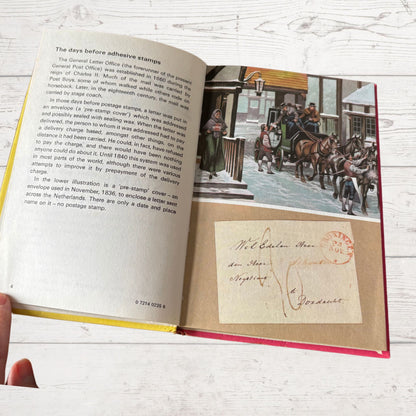 The days before adhesive stamps
The General Letter Office (the forerunner of the present
General Post Office) was established in 1660 during the
reign of Charles II. Much of the mail was carried by
Post Boys, some of whom walked while others rode on
horseback. Later, in the eighteenth century, the mail was
carried by stage coach.
In those days before postage stamps, a letter was put in
an envelope (a 'pre-stamp cover') which was then folded
and possibly sealed with sealing wax. When the letter was
delivered, the person to whom it was addressed had to pay
a delivery charge based, amongst other things, on the
distance it had been carried. He could, in fact, have refused
to pay the charge, and there would have been nothing
anyone could do about it. Until 1840 this system was used
in most parts of the world, although there were various
attempts to improve it by prepayment of the delivery
charge.
In the lower illustration is a 'pre-stamp' cover – an
envelope used in November, 1836, to enclose a letter sent
across the Netherlands. There are only a date and place
name on it – no postage stamp.
4
0 7214 0235 8
Wel Edelen Heer
den Heer
te
Dordrecht